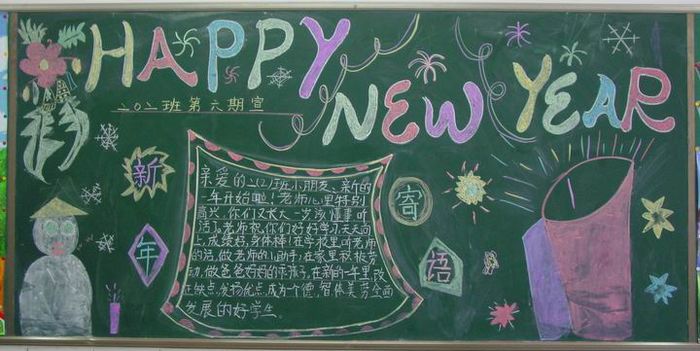 HAPPY
NEW YEAR
202班第六期宣
新年
寄语
亲爱的202班小朋友、新的
一年开始啦！老师心里特别
高兴，你们又长大一岁该懂事听
话了。老师祝你们好好学习，天天向
上，成绩好，身体棒！在学校里听老师
的话，做老师的小助手；在家里积极劳
动，做爸爸妈妈的乖孩子，在新的一年里改
正缺点，发扬优点，成为一个德，智体美劳全面
发展的好学生。